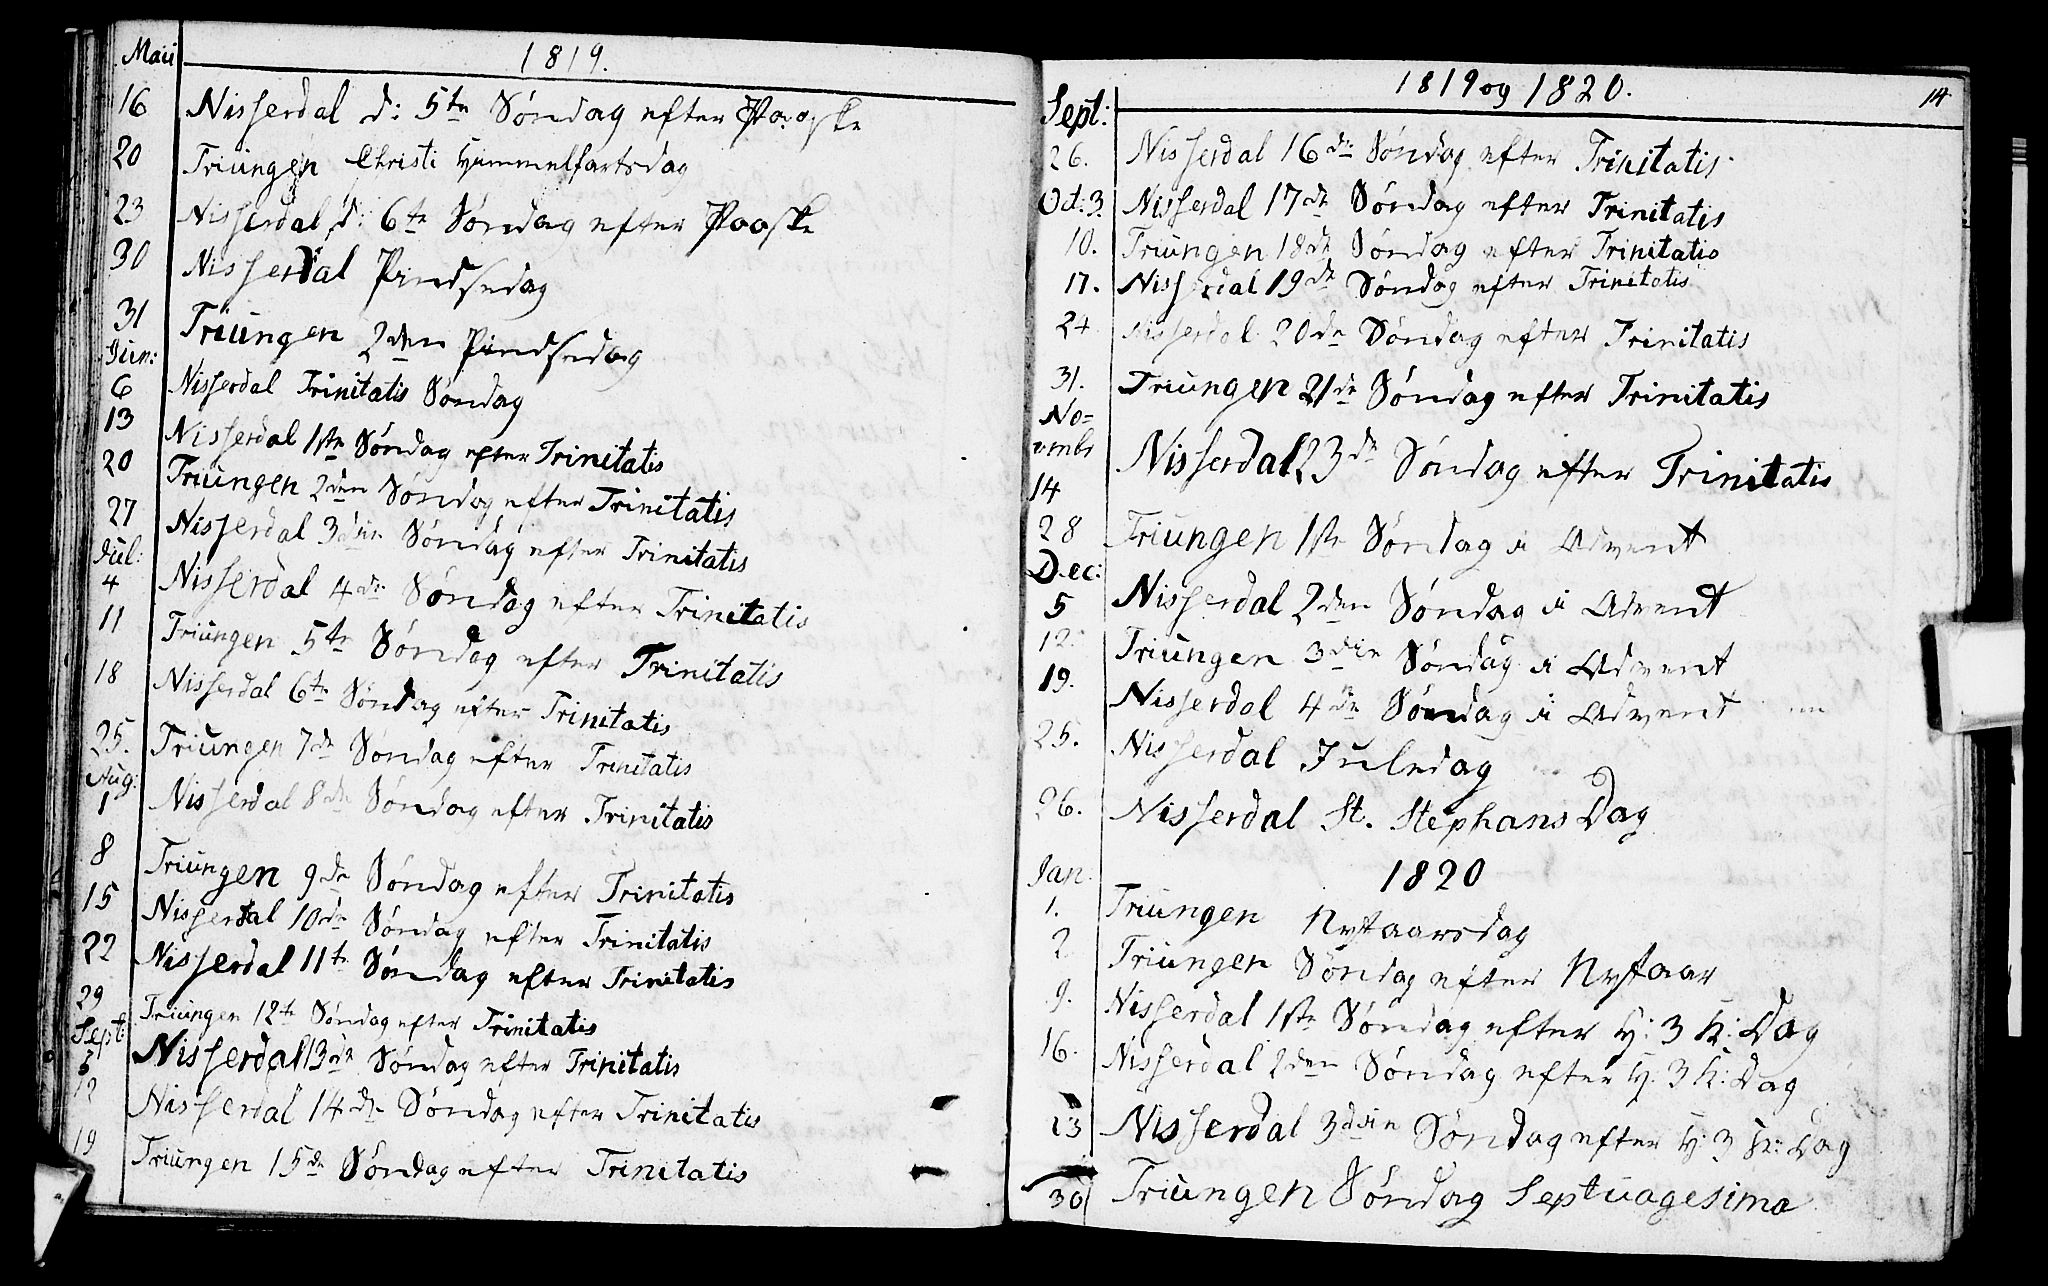 Maii 1819.
16 Nisserdal d: 5te Søndag efter Paaske
20 Triungen Christi Himmelfartsdag
23 Nisserdal d: 6te Søndag efter Paaske
30 Nisserdal Pindsedag
31 Triungen 2den Pindsedag
Jun:
6 Nisserdal Trinitatis Søndag
13 Nisserdal 1ste Søndag efter Trinitatis
20 Triungen 2den Søndag efter Trinitatis
27 Nisserdal 3die Søndag efter Trinitatis
Jul:
4 Nisserdal 4de Søndag efter Trinitatis
11 Triungen 5te Søndag efter Trinitatis
18 Nisserdal 6te Søndag efter Trinitatis
25. Triungen 7de Søndag efter Trinitatis
Aug:
1 Nisserdal 8de Søndag efter Trinitatis
8 Triungen 9de Søndag efter Trinitatis
15 Nisserdal 10de Søndag efter Trinitatis
22 Nisserdal 11te Søndag efter Trinitatis
29 Triungen 12te Søndag efter Trinitatis
Sept:
5 Nisserdal 13de Søndag efter Trinitatis
12 Nisserdal 14de Søndag efter Trinitatis
19 Triungen 15de Søndag efter Trinitatis
1819 og 1820. 14
Sept:
26. Nisserdal 16de Søndag efter Trinitatis
Oct. 3. Nisserdal 17de Søndag efter Trinitatis
10. Triungen 18de Søndag efter Trinitatis
17. Nisserdal 19de Søndag efter Trinitatis
24 Nisserdal 20de Søndag efter Trinitatis
31. Triungen 21de Søndag efter Trinitatis
No=
vembr
14 Nisserdal 23de Søndag efter Trinitatis
28 Triungen 1ste Søndag i Advent
Dec:
5 Nisserdal 2den Søndag i Advent
12. Triungen 3die Søndag i Advent
19. Nisserdal 4de Søndag i Advent
25. Nisserdal Juledag
26. Nisserdal St. Stephans Dag
Jan. 1820
1. Triungen Nytaarsdag
2 Triungen Søndag efter Nytaar
9. Nisserdal 1ste Søndag efter H: 3 K: Dag
16. Nisserdal 2den Søndag efter H: 3 K: Dag
23 Nisserdal 3die Søndag efter H: 3 K: Dag
30 Triungen Søndag Septuagesima